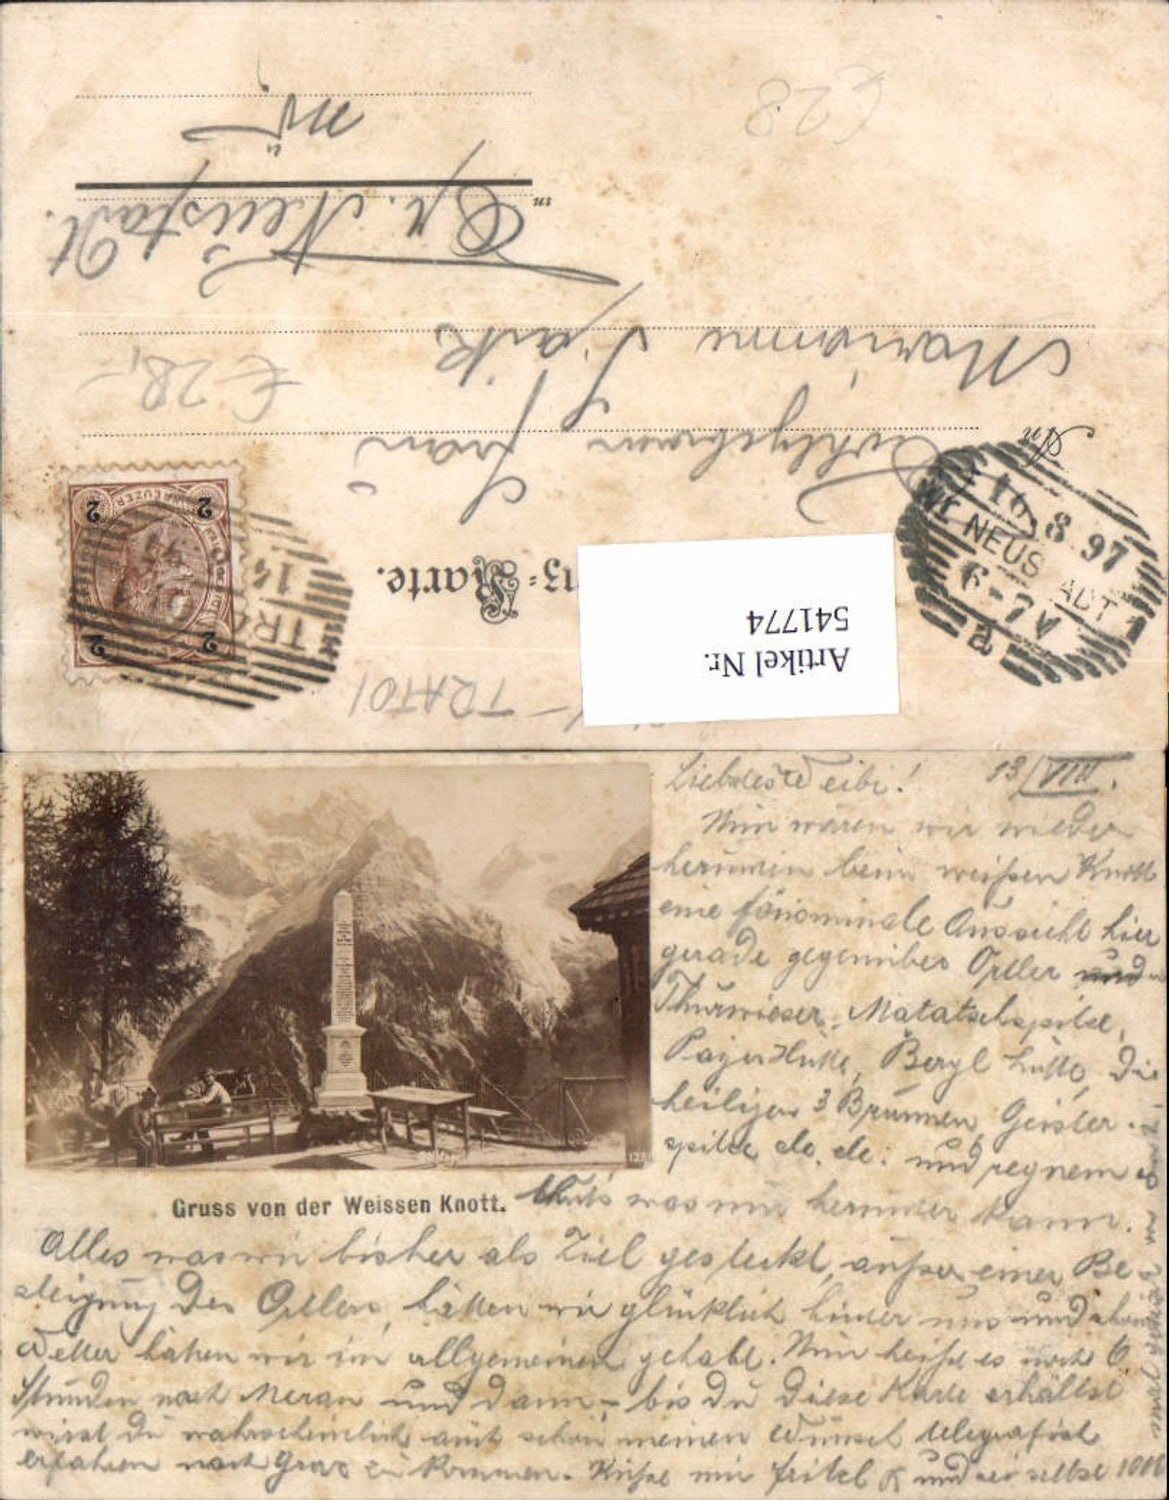 628
in
Neustadt.
Marianne
€ 28,-
An
Wohlgeboren Frau
2 2
KREUZER
2 2
TRA
16.8.97
WR. NEUSTADT 1
6-7V
a
Karte.
Artikel Nr.
541774
TRAFOI
Liebste Weibi! 13/VIII.
Nun waren wir wieder
herunten beim weißen Knott
eine fönominale Aussicht hier
gerade gegenüber Ortler und
Thurwieser, Matatschspitze,
Payer Hütte, Bergl Hütte, die
heiligen 3 Brunnen Geister-
spitze etc. etc. und regnen
thut's was nur herunter kann.
Gruss von der Weissen Knott.
Alles was wir bisher als Ziel gesteckt, außer einer Be-
steigung des Ortlers, hätten wir glücklich hinter uns und schön
Wetter haben wir im allgemeinen gehabt. Nun heißt es noch 6
Stunden nach Meran und dann - bis du diese Karte erhältst
wirst du wahrscheinlich auch schon meinen Wunsch telegrafisch
erfahren nach Graz zu kommen. Küsse mir Fritzl und sei selbst 1000
mal geküsst